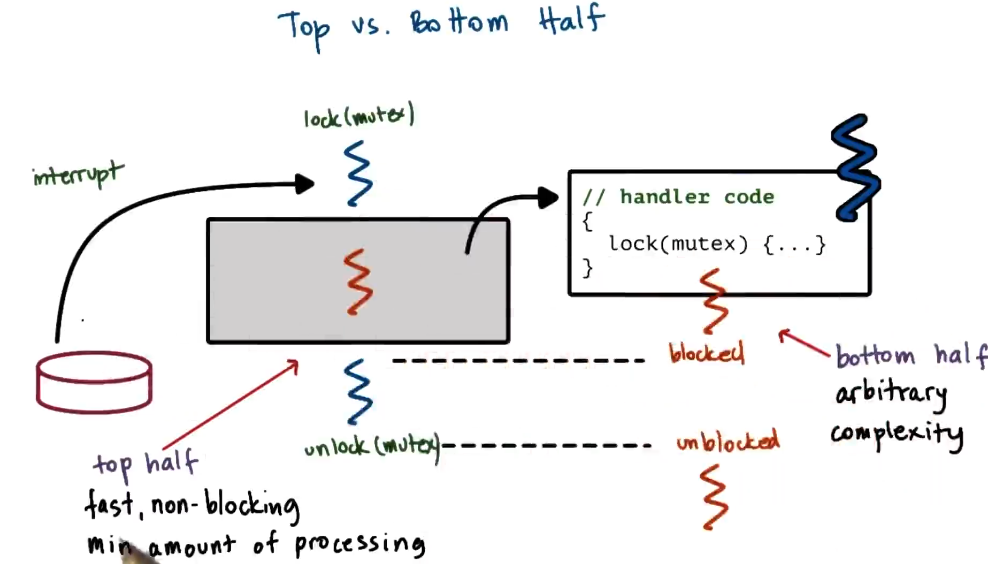 Top vs. Bottom Half
lock(mutex)
interrupt
// handler code
{
lock(mutex) {...}
}
blocked
bottom half
arbitrary
complexity
unlock(mutex)
unblocked
top half
fast, non-blocking
min amount of processing